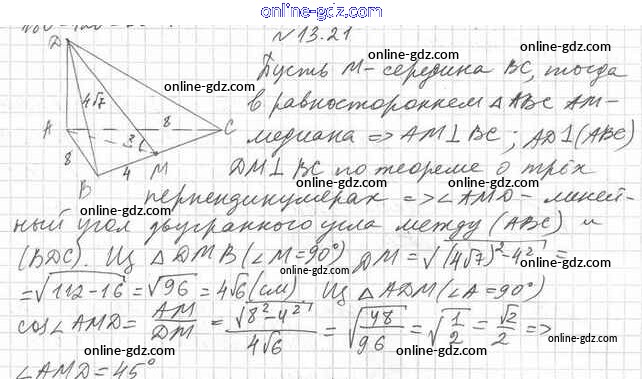 online-gdz.com
№13.21
online-gdz.com
D
Пусть M- середина BC, тогда
online-gdz.com
4√7
в равностороннем △ABC AM-
A
8
C
медиана => AM⊥BC; AD⊥(ABC)
3
8
4
M
DM⊥BC по теореме о трёх
B
перпендикулярах => ∠AMD- линей-
ный угол двугранного угла между (ABC) и
(BDC). Из △DMB(∠M=90°) DM=√((4√7)²-4²)=
=√(112-16)=√96=4√6(см). Из △ADM(∠A=90°)
cos∠AMD= AM/DM = √(8²-4²)/4√6 =√(48/96)=√(1/2)=√2/2 =>
∠AMD=45°
online-gdz.com
online-gdz.com
online-gdz.com
online-gdz.com
online-gdz.com
online-gdz.com
online-gdz.com
online-gdz.com
online-gdz.com
online-gdz.com